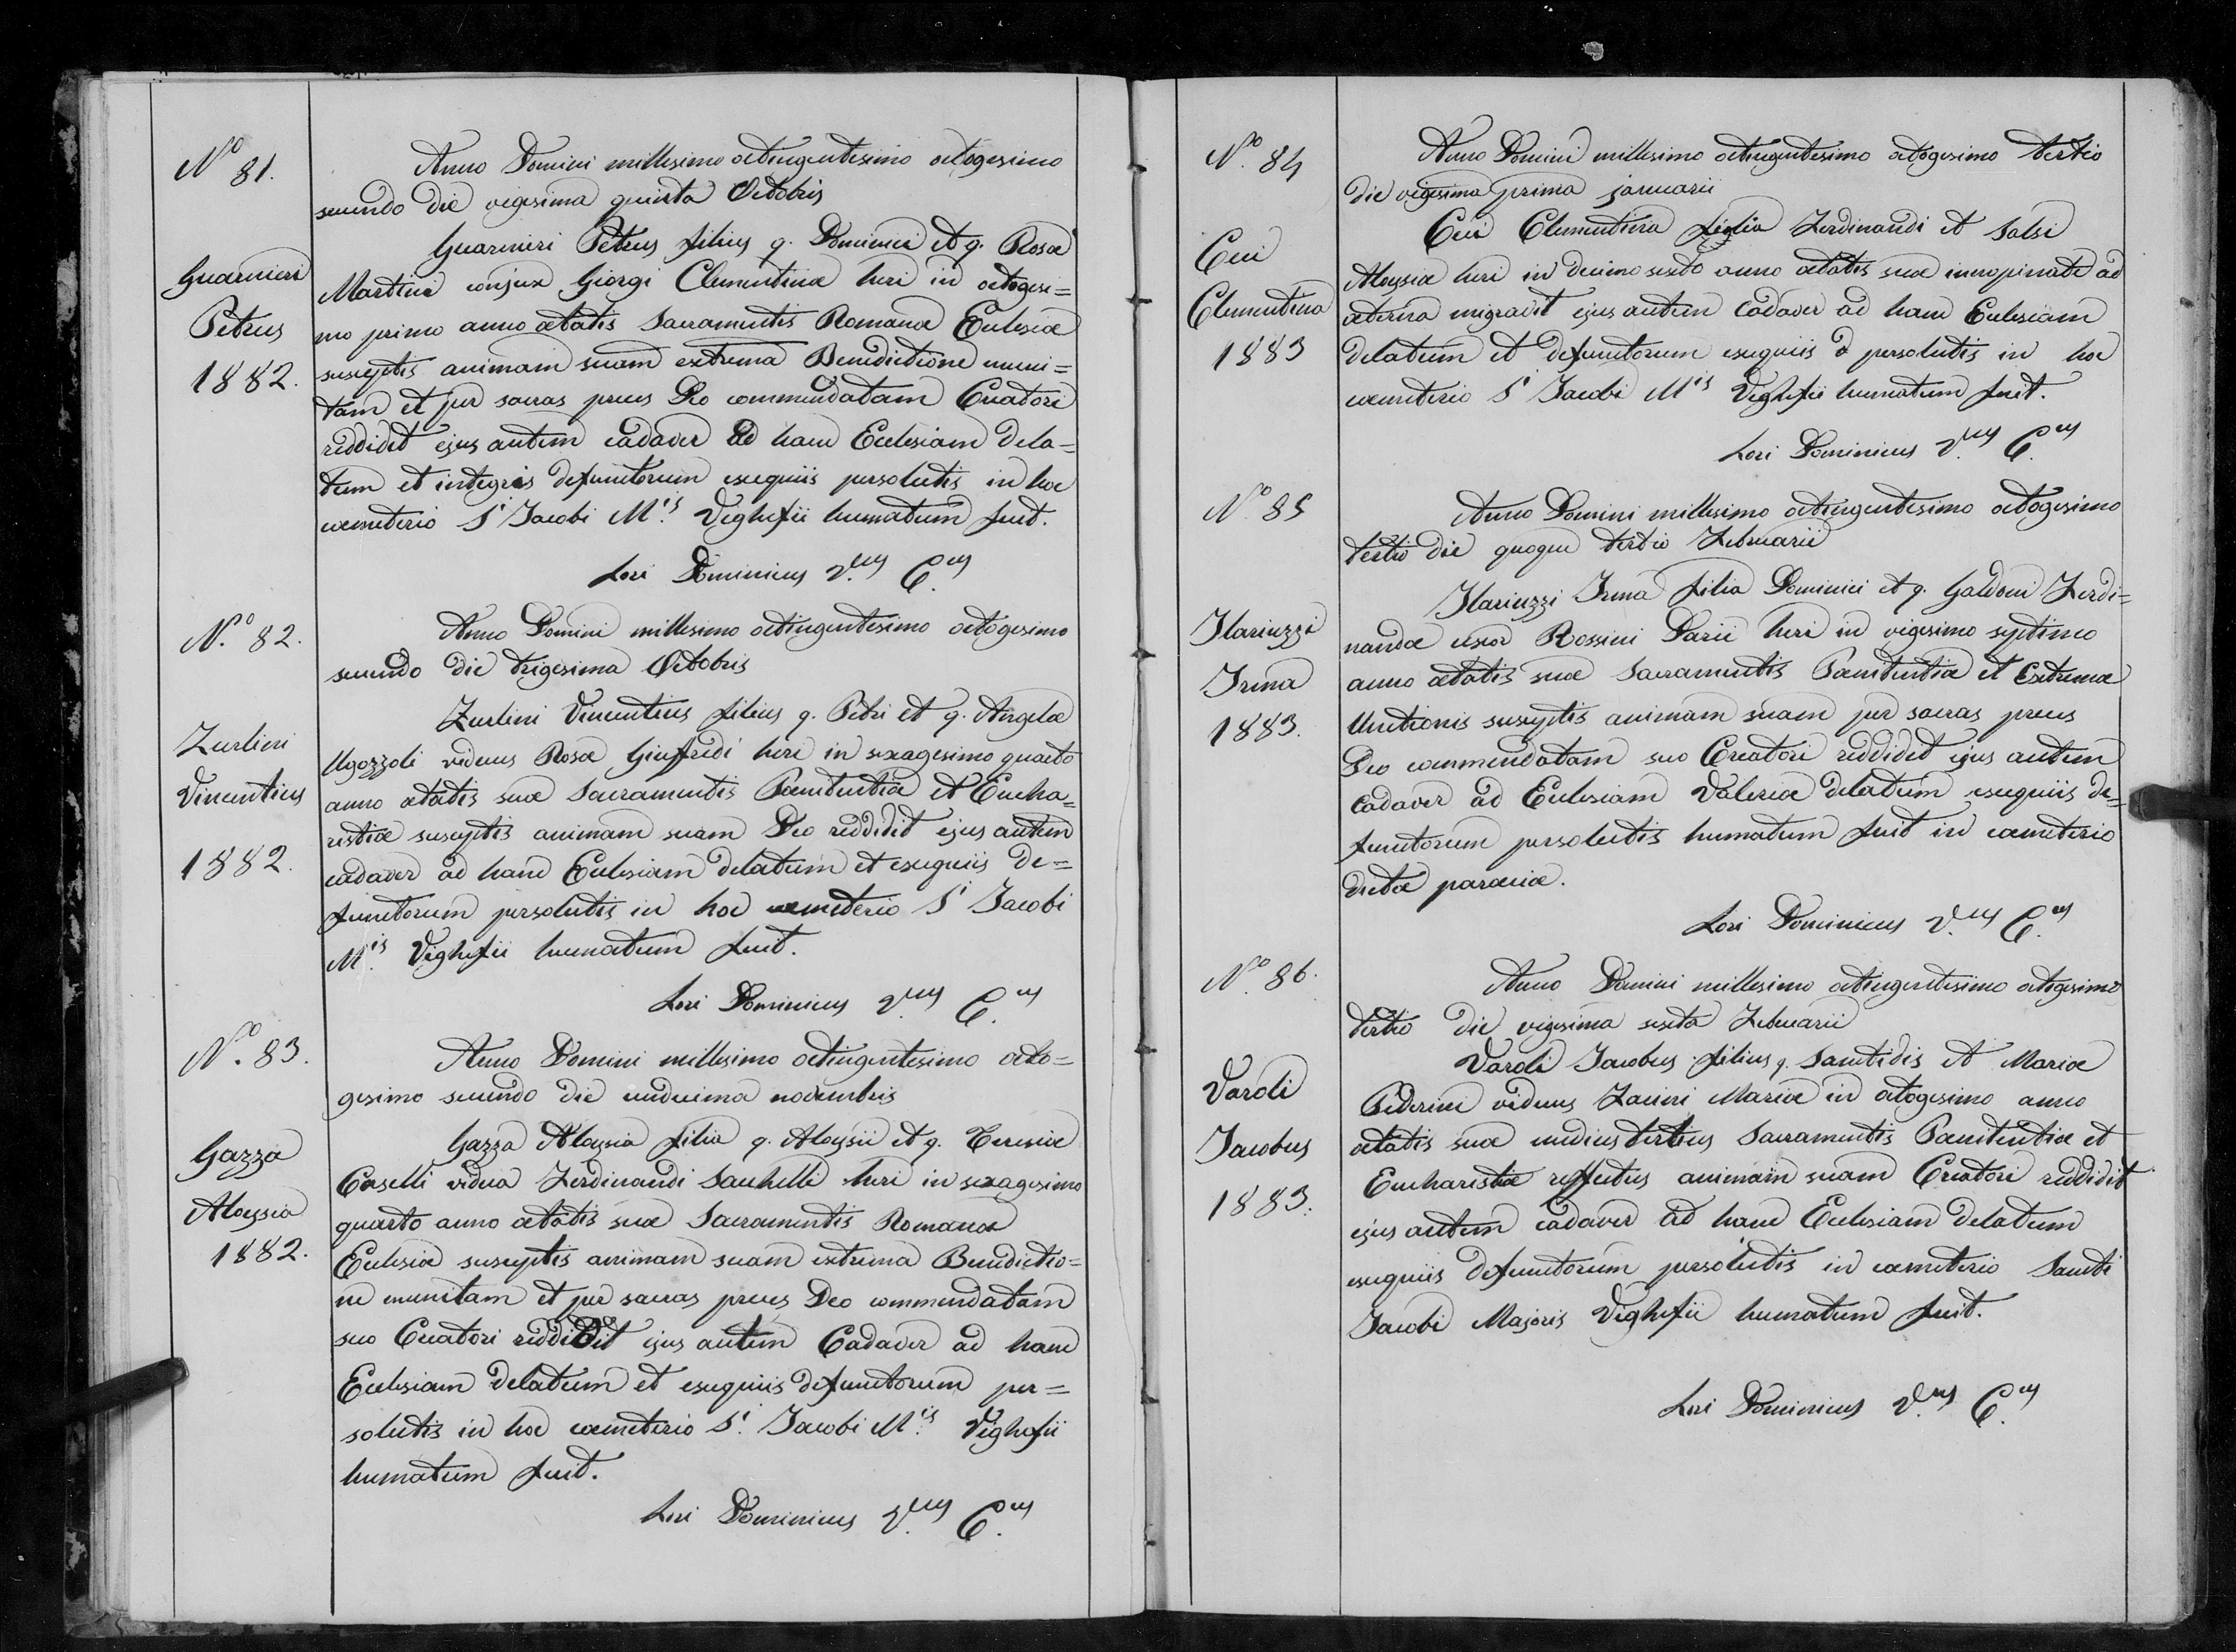 Nº 81.
Guarnieri
Petrus
1882.
Anno Domini millesimo octingentesimo octogesimo
secundo die vigesima quinta Octobris
Guarnieri Petrus filius q. Dominici et q. Rosæ
Martini conjux Giorgi Clementinæ heri in octogesi=
mo primo anno ætatis Sacramentis Romanæ Eclesiæ
susceptis animam suam extrema Benedictione muni=
tam et per sacras preces Deo commendatam Creatori
reddidit ejus autem cadaver ad hanc Ecclesiam dela=
tum et integris defunctorum exequiis persolutis in hoc
cœmeterio Sⁱ Jacobi Mⁱˢ Vighefii humatum fuit.
Lori Dominicus V.ᵘˢ C.ᵘˢ
N.º 82.
Zurlini
Vincentius
1882.
Anno Domini millesimo octingentesimo octogesimo
secundo die trigesima Octobris
Zurlini Vincentius filius q. Petri et q. Angelæ
Ugozzoli viduus Rosæ Giuffredi heri in sexagesimo quarto
anno ætatis suæ Sacramentis Pœnitentiæ et Eucha=
ristiæ susceptis animam suam Deo reddidit ejus autem
cadaver ad hanc Eclesiam delatum et exequiis de=
functorum persolutis in hoc cœmeterio Sⁱ Jacobi
Mⁱˢ Vighefii humatum fuit.
Lori Dominicus V.ᵘˢ C.ᵘˢ
Nº. 83.
Gazza
Aloysia
1882.
Anno Domini millesimo octingentesimo octo=
gesimo secundo die undecima novembris
Gazza Aloysia filia q. Aloysii et q. Teresiæ
Caselli vidua Ferdinandi Sanhelli heri in sexagesimo
quarto anno ætatis suæ Sacramentis Romanæ
Eclesiæ susceptis animam suam extrema Benedictio=
ne munitam et per sacras preces Deo commendatam
suo Creatori reddidit ejus autem Cadaver ad hanc
Ecclesiam delatum et exequiis defunctorum per=
solutis in hoc cœmeterio Sⁱ. Jacobi Mⁱˢ Vighefii
humatum fuit.
Lori Dominicus V.ᵘˢ C.ᵘˢ
Nº. 84
Clementina
1883
Anno Domini millesimo octingentesimo octogesimo tertio
die vigesima prima januarii
Clementina filia Ferdinandi et Salsi
Aloysiæ heri in decimo sexto anno ætatis suæ innopinate ad
æterna migravit ejus autem Cadaver ad hanc Eclesiam
delatum et defunctorum exequiis persolutis in hoc
cœmeterio Sⁱ Jacobi Mⁱˢ Vighefii humatum fuit.
Lori Dominicus V.ᵘˢ C.ᵘˢ
Nº 85
Ilariuzzi
Irma
1883.
Anno Domini millesimo octingentesimo octogesimo
tertio die quoque tertio Februarii
Ilariuzzi Irma filia Dominici et q. Galdoni Ferdi=
nandæ uxor Rossini Darii heri in vigesimo septimo
anno ætatis suæ Sacramentis Pœnitentiæ et Extremæ
Unctionis susceptis animam suam per sacras preces
Deo commendatam suo Creatori reddidit ejus autem
cadaver ad Eclesiam Valeriæ delatum exequiis de=
functorum persolutis humatum fuit in cœmeterio
dictæ parœciæ.
Lori Dominicus V.ᵘˢ C.ᵘˢ
Nº. 86.
Varoli
Jacobus
1883.
Anno Domini millesimo octingentesimo octogesimo
tertio die vigesima sexta Februarii
Varoli Jacobus filius q. Sanctidis et Mariæ
Pederini viduus Zanni Mariæ in octogesimo anno
ætatis suæ nudius tertius Sacramentis Pœnitentiæ et
Eucharistiæ reffectus animam suam Creatori reddidit
ejus autem cadaver ad hanc Ecclesiam delatum
exequiis defunctorum persolutis in cœmeterio Sancti
Jacobi Majoris Vighefii humatum fuit.
Lori Dominicus V.ᵘˢ C.ᵘˢ